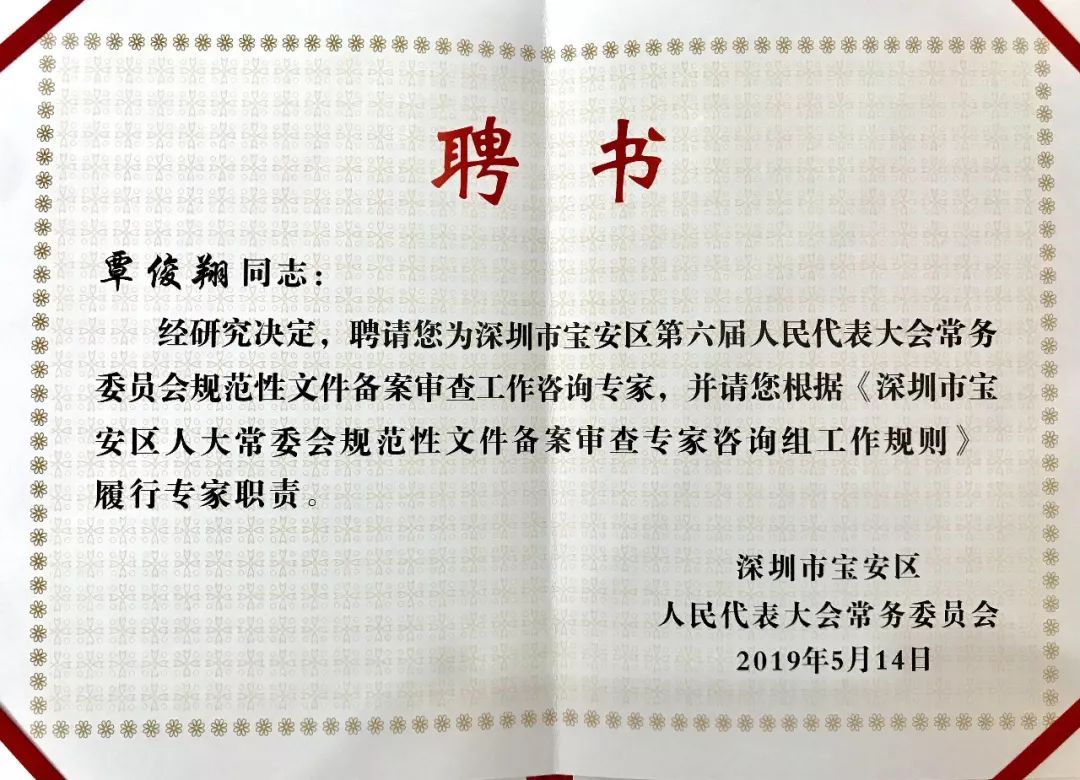 聘书
覃俊翔同志：
经研究决定，聘请您为深圳市宝安区第六届人民代表大会常务
委员会规范性文件备案审查工作咨询专家，并请您根据《深圳市宝
安区人大常委会规范性文件备案审查专家咨询组工作规则》
履行专家职责。
深圳市宝安区
人民代表大会常务委员会
2019年5月14日